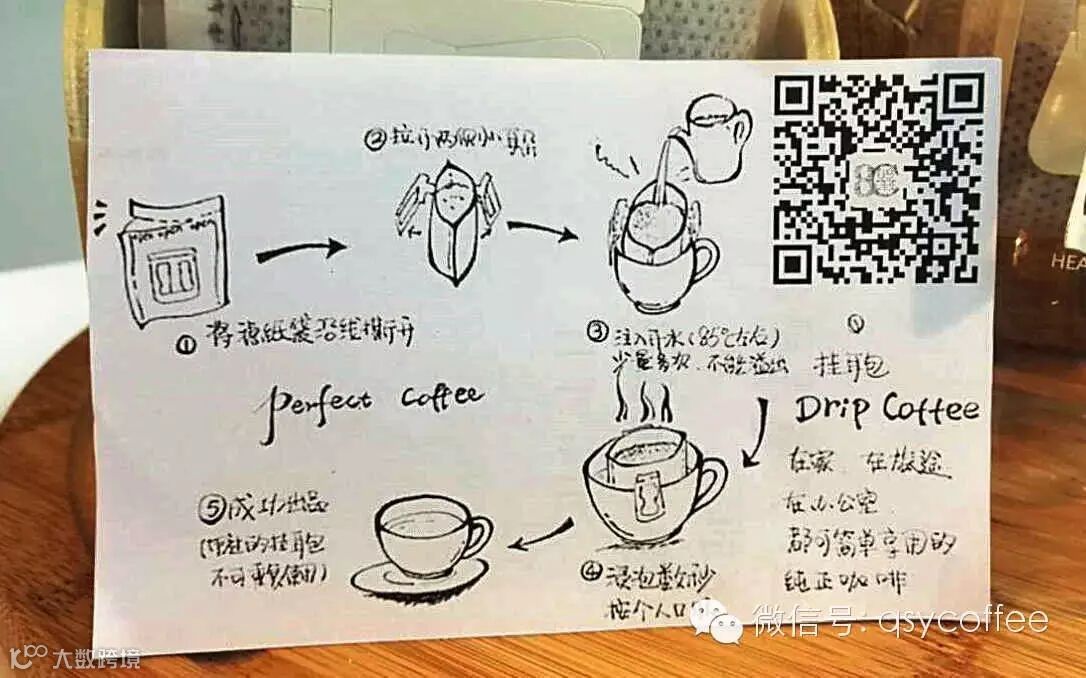 ②拉开两侧小耳朵
①将滤纸袋沿线撕开
③注入开水(85℃左右)
少量多次,不能溢出
挂耳包
perfect coffee
Drip Coffee
在家、在旅途
在办公室
都可简单享用的
纯正咖啡
④浸泡数秒
按个人口
⑤成功出品
的挂耳包
不可重复使用)
HEA
微信号: qsycoffee
大数跨境